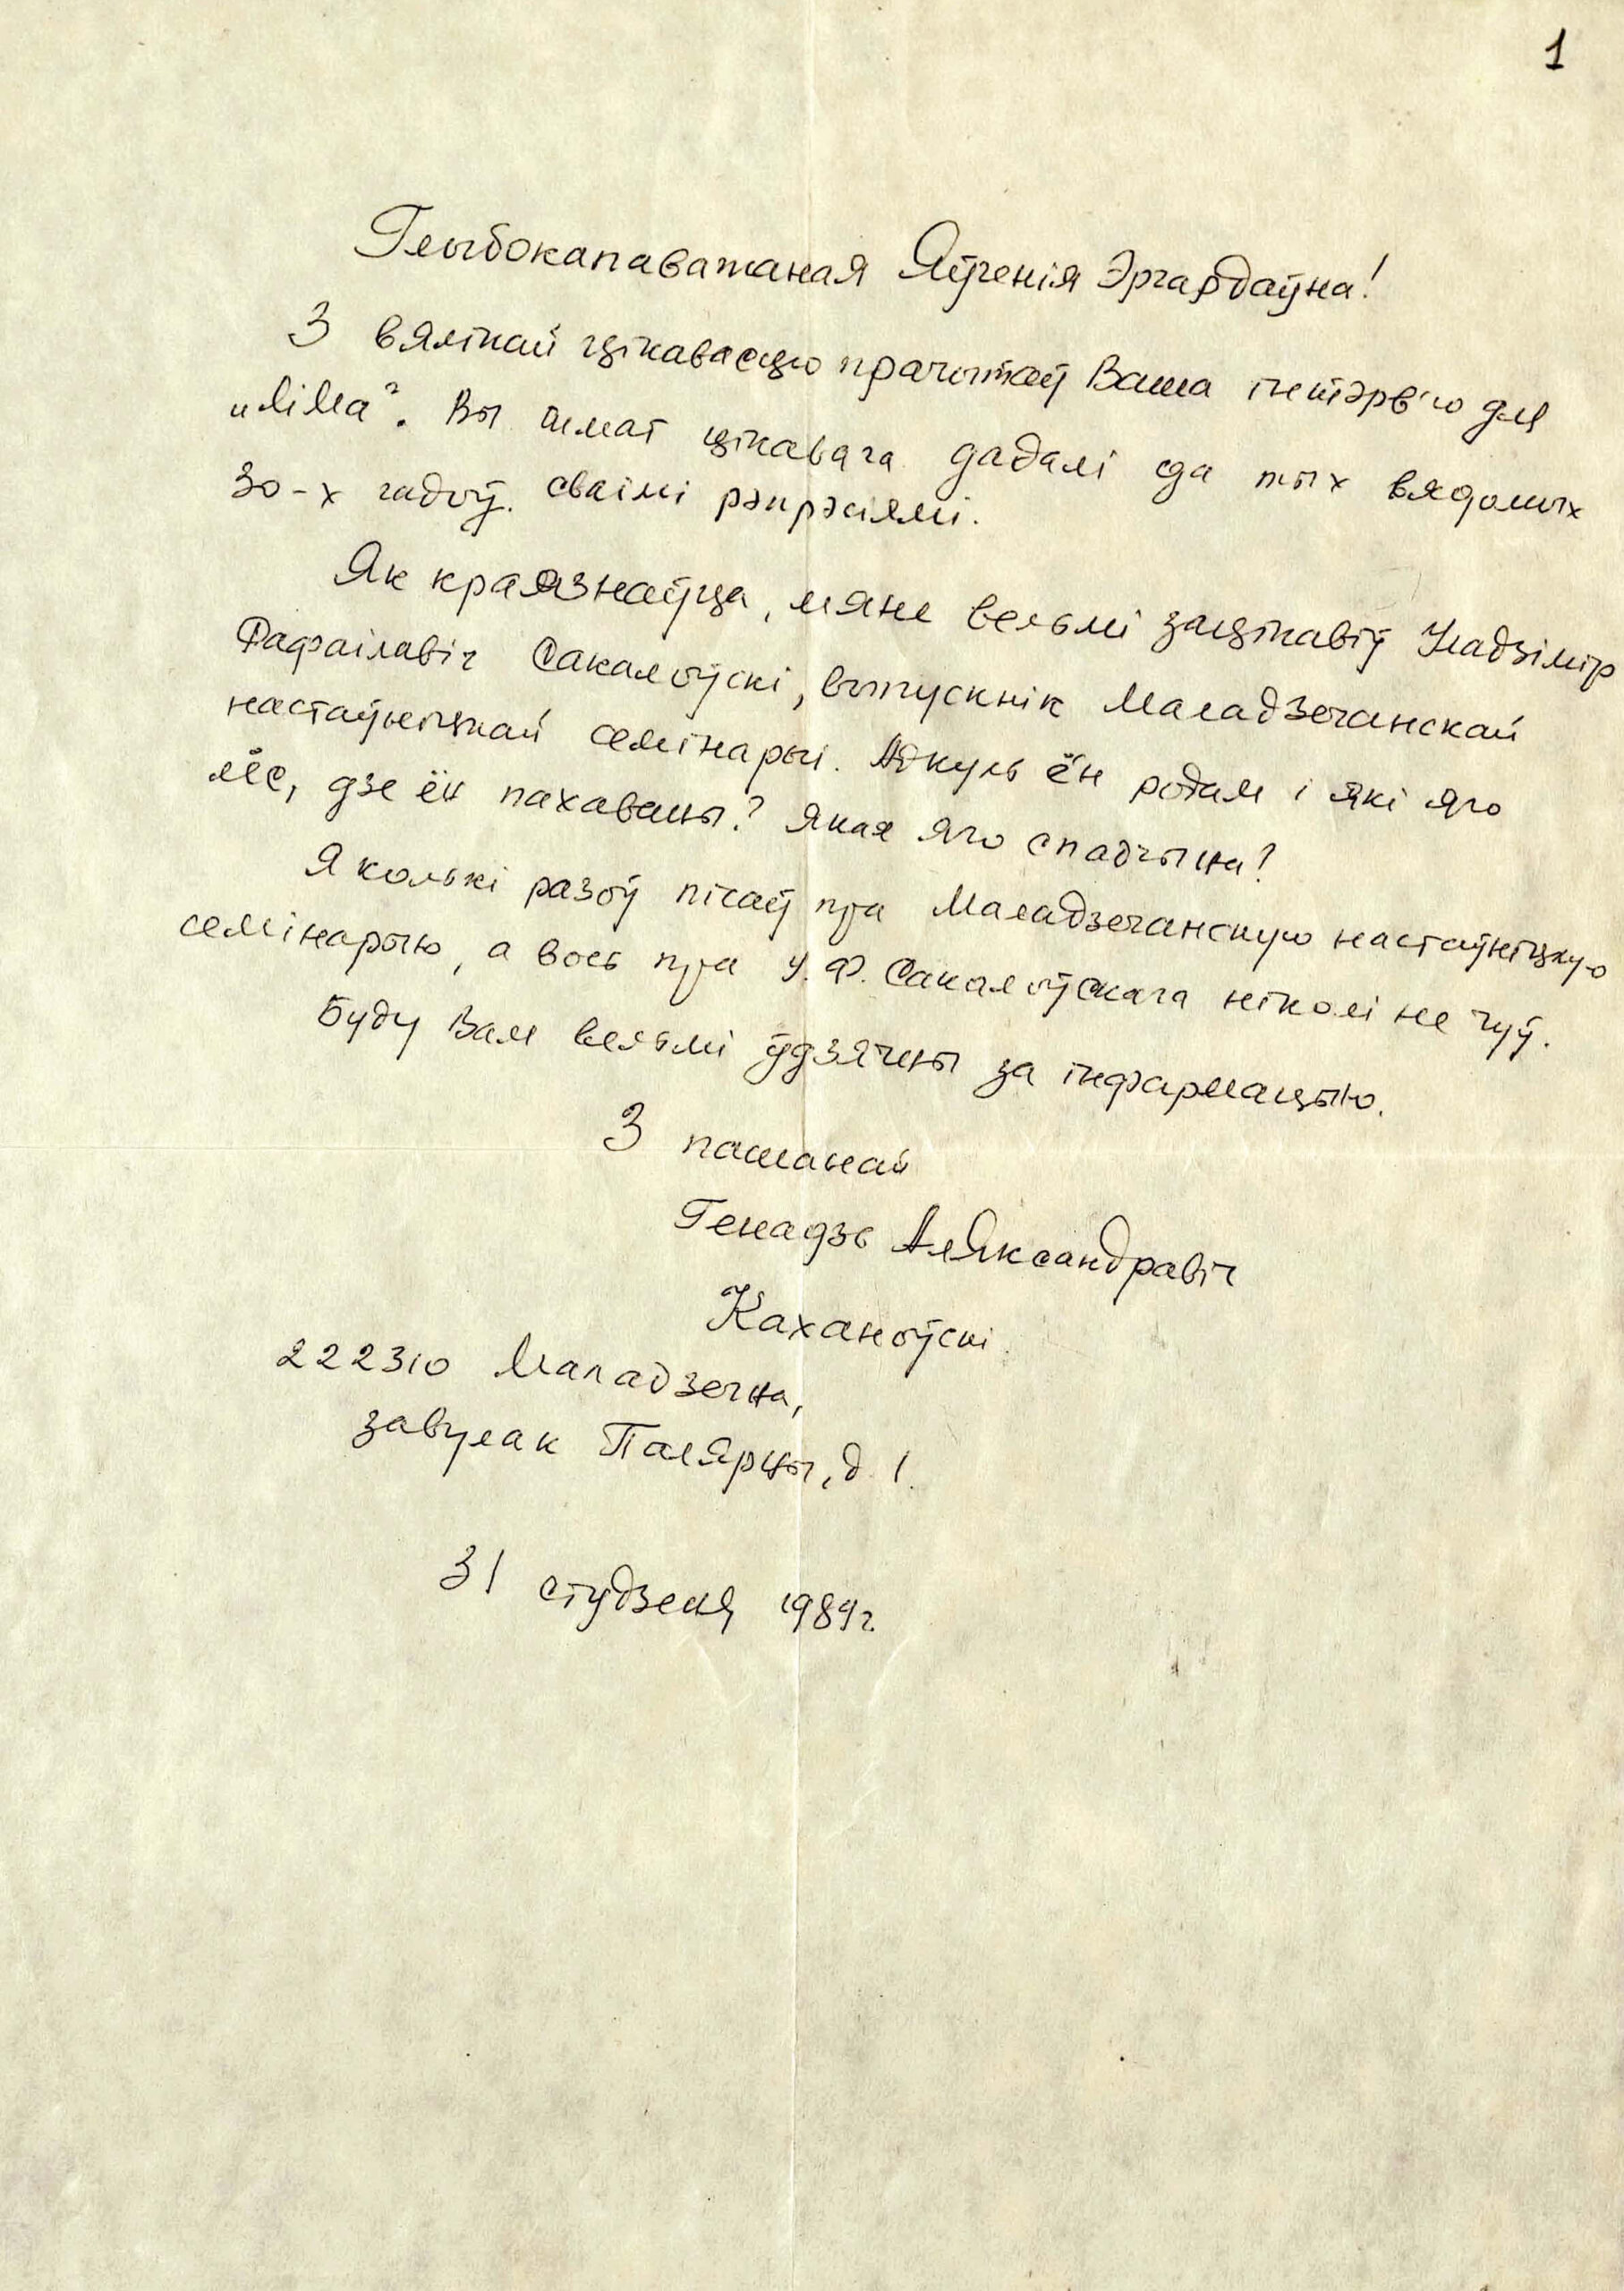 1
Глыбокапаважаная Яўгенія Эргардаўна!
З вялікай цікавасцю прачытаў Ваша інтэрв'ю для
„ліМа". Вы шмат цікавага дадалі да тых вядомых
30-х гадоў. сваімі рэпрэсіямі.
Як краязнаўца, мяне вельмі зацікавіў Уладзімір
Фафаілавіч Сакалоўскі, выпускнік Маладзечанскай
настаўніцкай семінарыі. Адкуль ён родам і які яго
лёс, дзе ён пахаваны? Якая яго спадчына?
Я колькі разоў пісаў пра Маладзечанскую настаўніцкую
семінарыю, а вось пра У. Ф. Сакалоўскага ніколі не чуў.
Буду Вам вельмі ўдзячны за інфармацыю.
З пашанай
Генадзь Аляксандравіч
Каханоўскі
222310 Маладзечна,
завулак Палярны, д. 1.
31 студзеня 1989г.